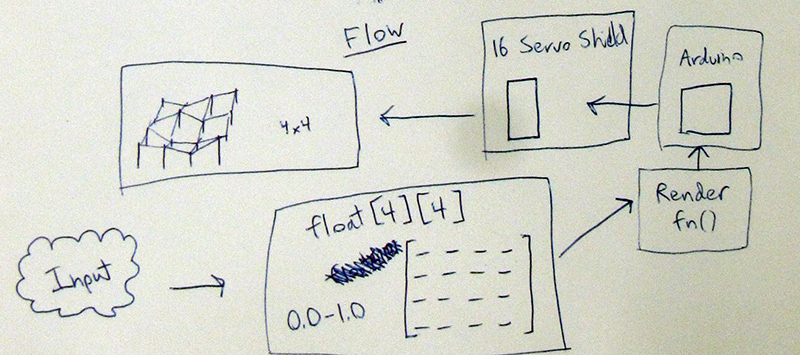 Flow
16 Servo Shield
Arduino
4x4
Render
fn()
float[4][4]
0.0-1.0
Input